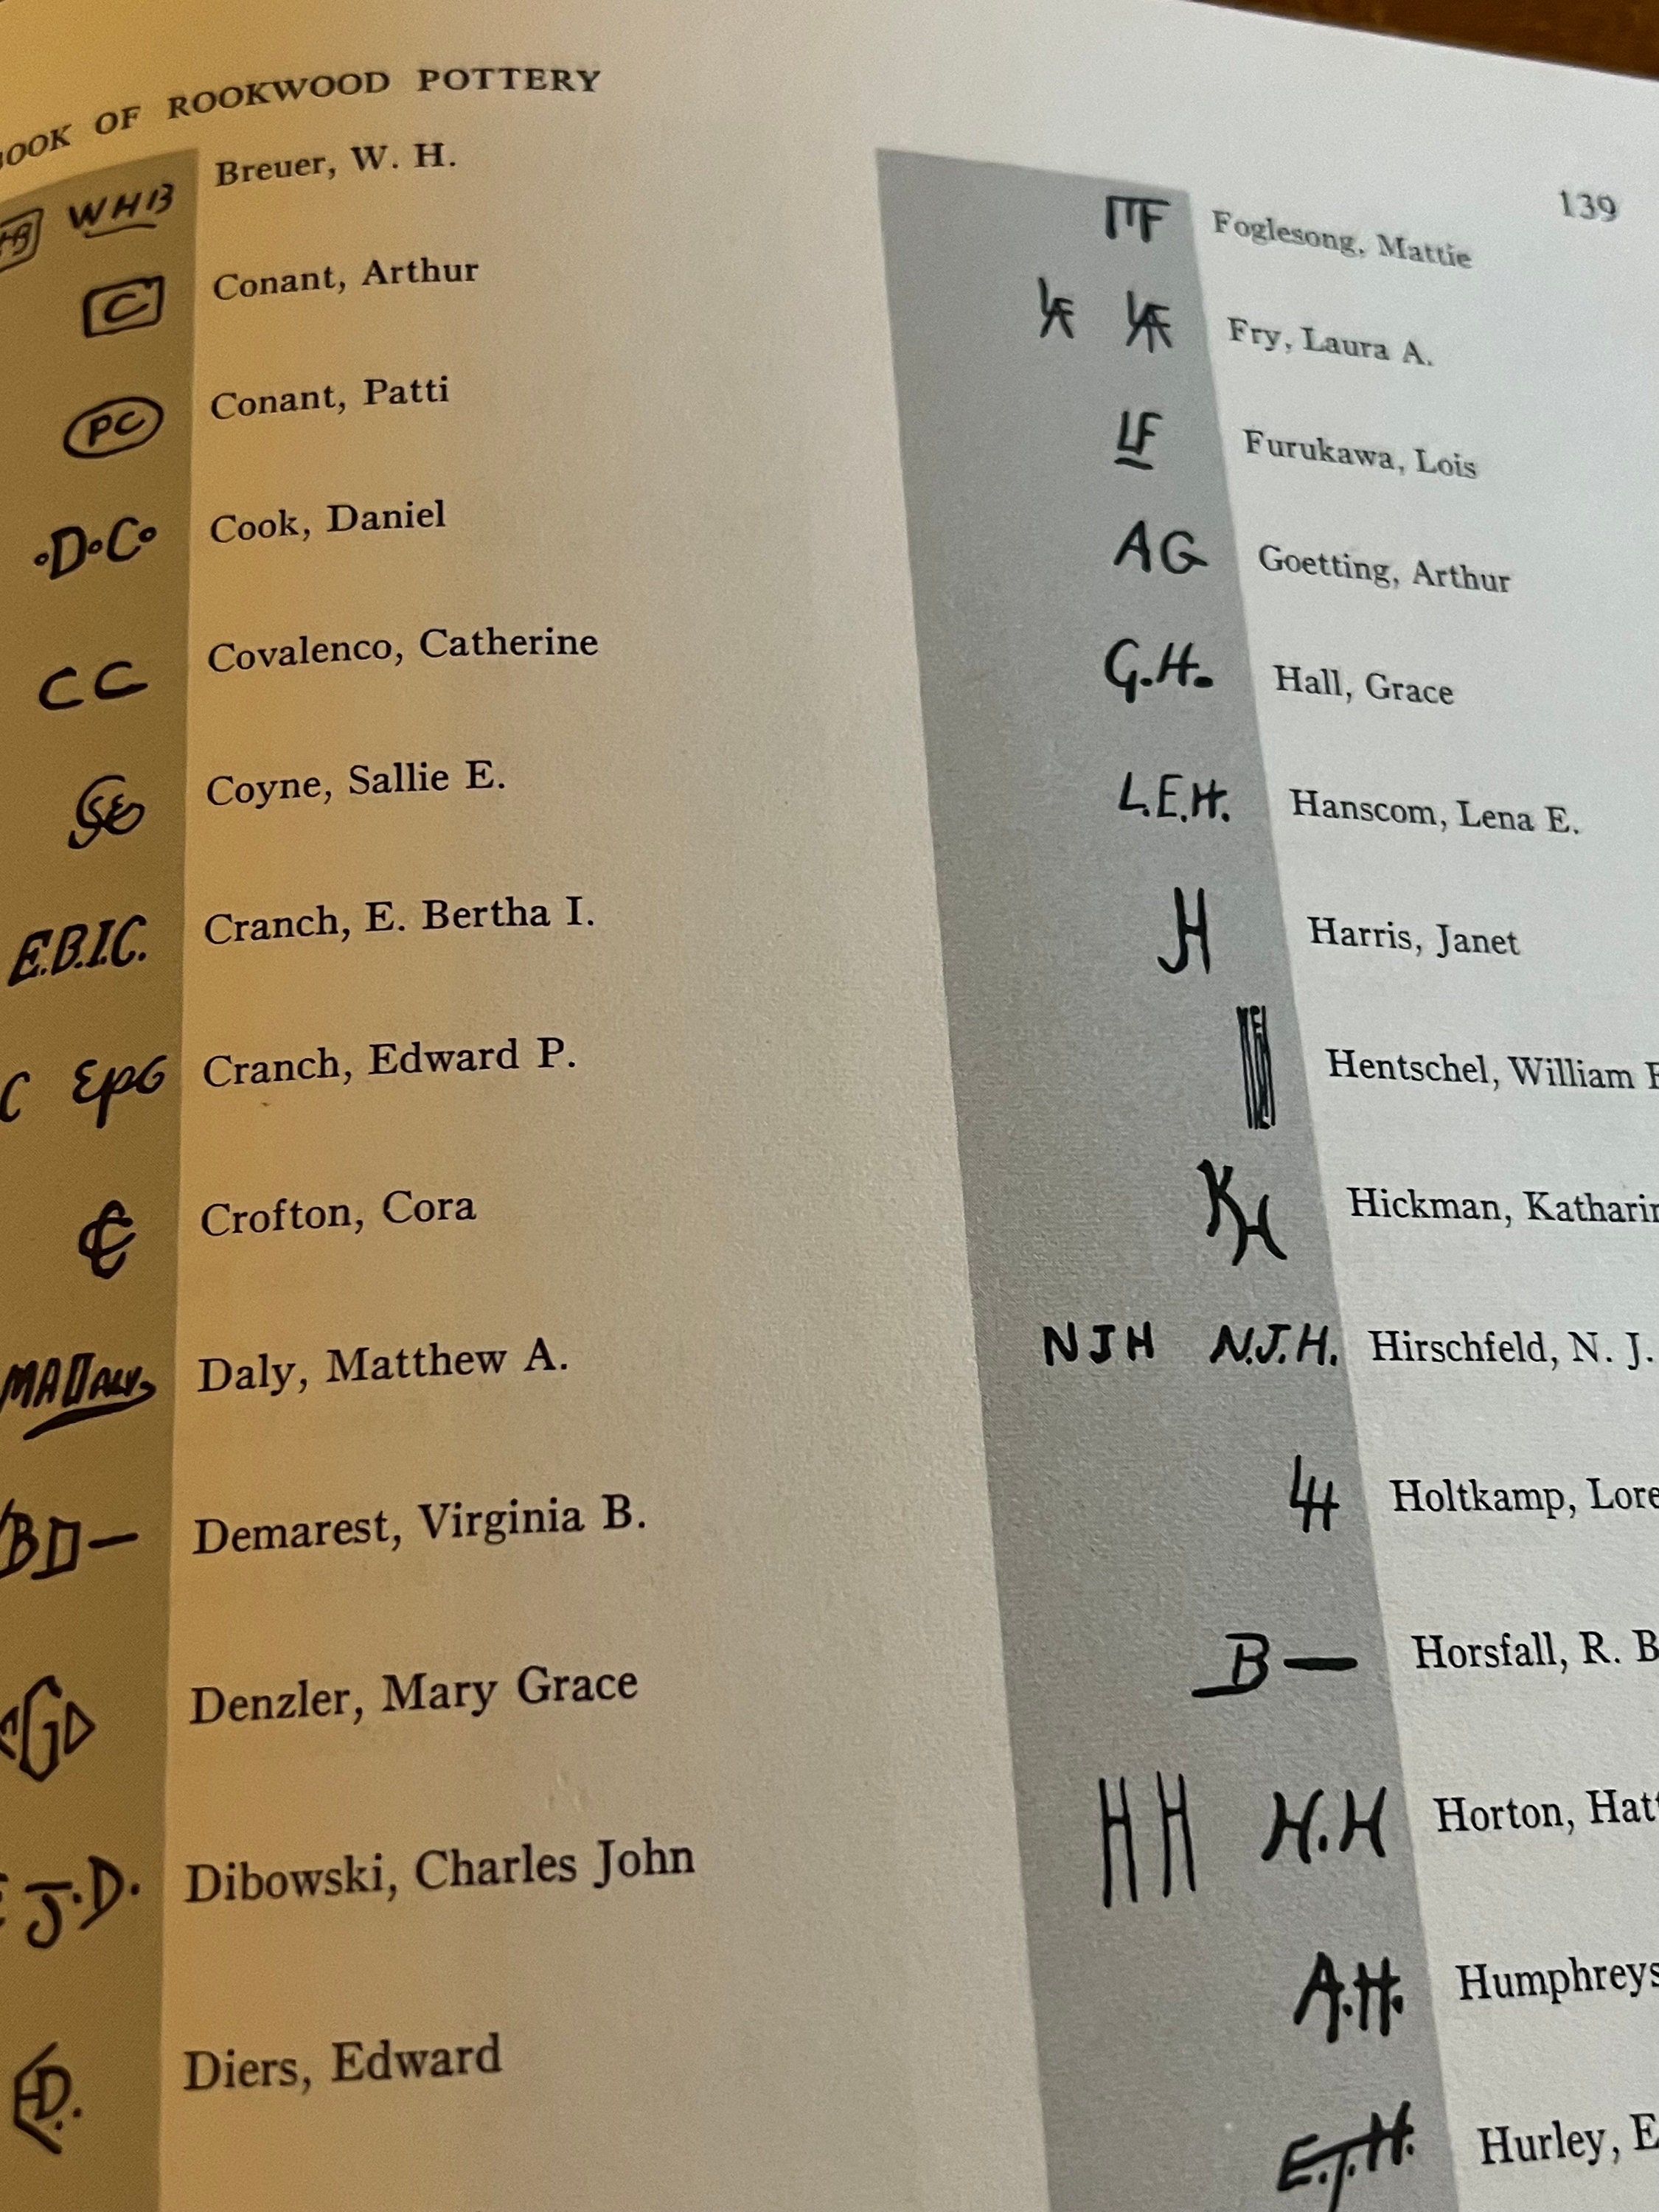 BOOK OF ROOKWOOD POTTERY
139
WHB Breuer, W. H.
C Conant, Arthur
PC Conant, Patti
·D·C· Cook, Daniel
CC Covalenco, Catherine
Coyne, Sallie E.
E.B.I.C. Cranch, E. Bertha I.
C EPC Cranch, Edward P.
CC Crofton, Cora
MADALY Daly, Matthew A.
BD— Demarest, Virginia B.
GD Denzler, Mary Grace
J.D. Dibowski, Charles John
ED. Diers, Edward
MF Foglesong, Mattie
LAF LAF Fry, Laura A.
LF Furukawa, Lois
AG Goetting, Arthur
G.H. Hall, Grace
L.E.H. Hanscom, Lena E.
JH Harris, Janet
Hentschel, William
KH Hickman,
NJH N.J.H. Hirschfeld, N. J.
LH Holtkamp,
B— Horsfall, R. B
HH H.H Horton,
A.H. Humphreys
E.T.H. Hurley, E